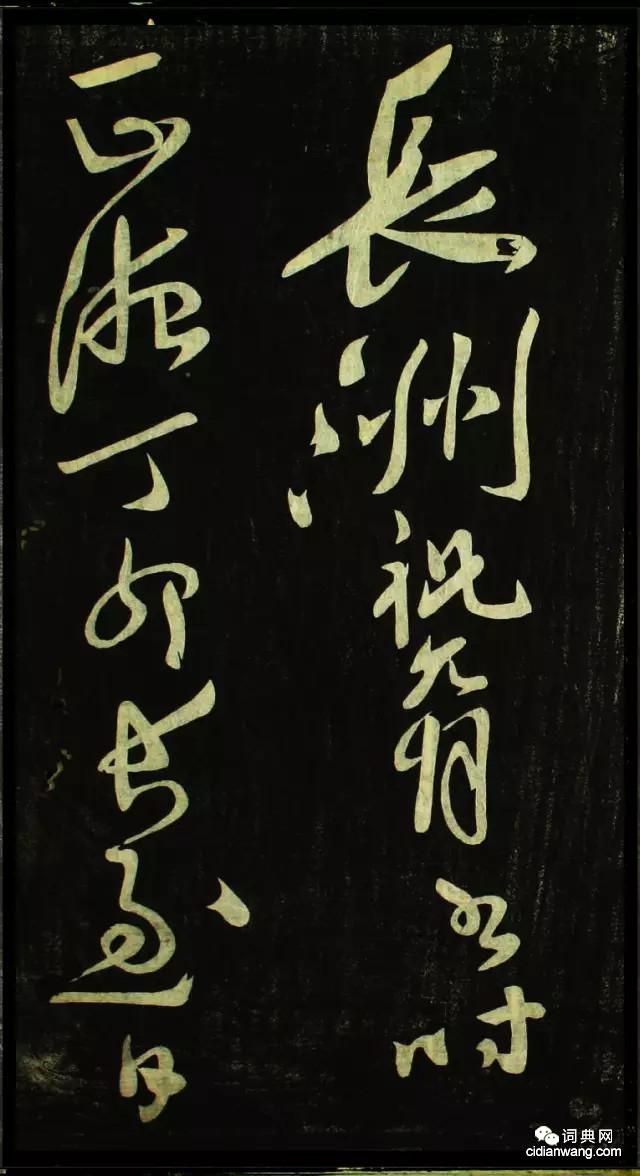 長洲祝允明時
正德丁卯長至日
词典网
cidianwang.com